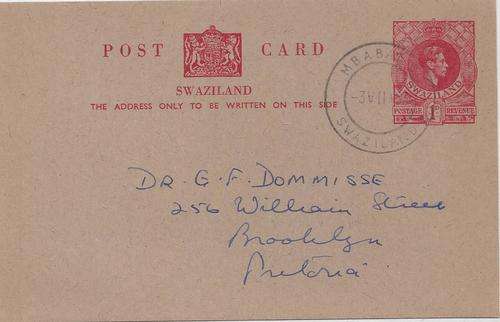 POST CARD
SWAZILAND
THE ADDRESS ONLY TO BE WRITTEN ON THIS SIDE
SWAZILAND
POSTAGE 1D REVENUE
SWAZILAND
DR. G. F. DOMMISSE
256 William Street
Brooklyn
Pretoria